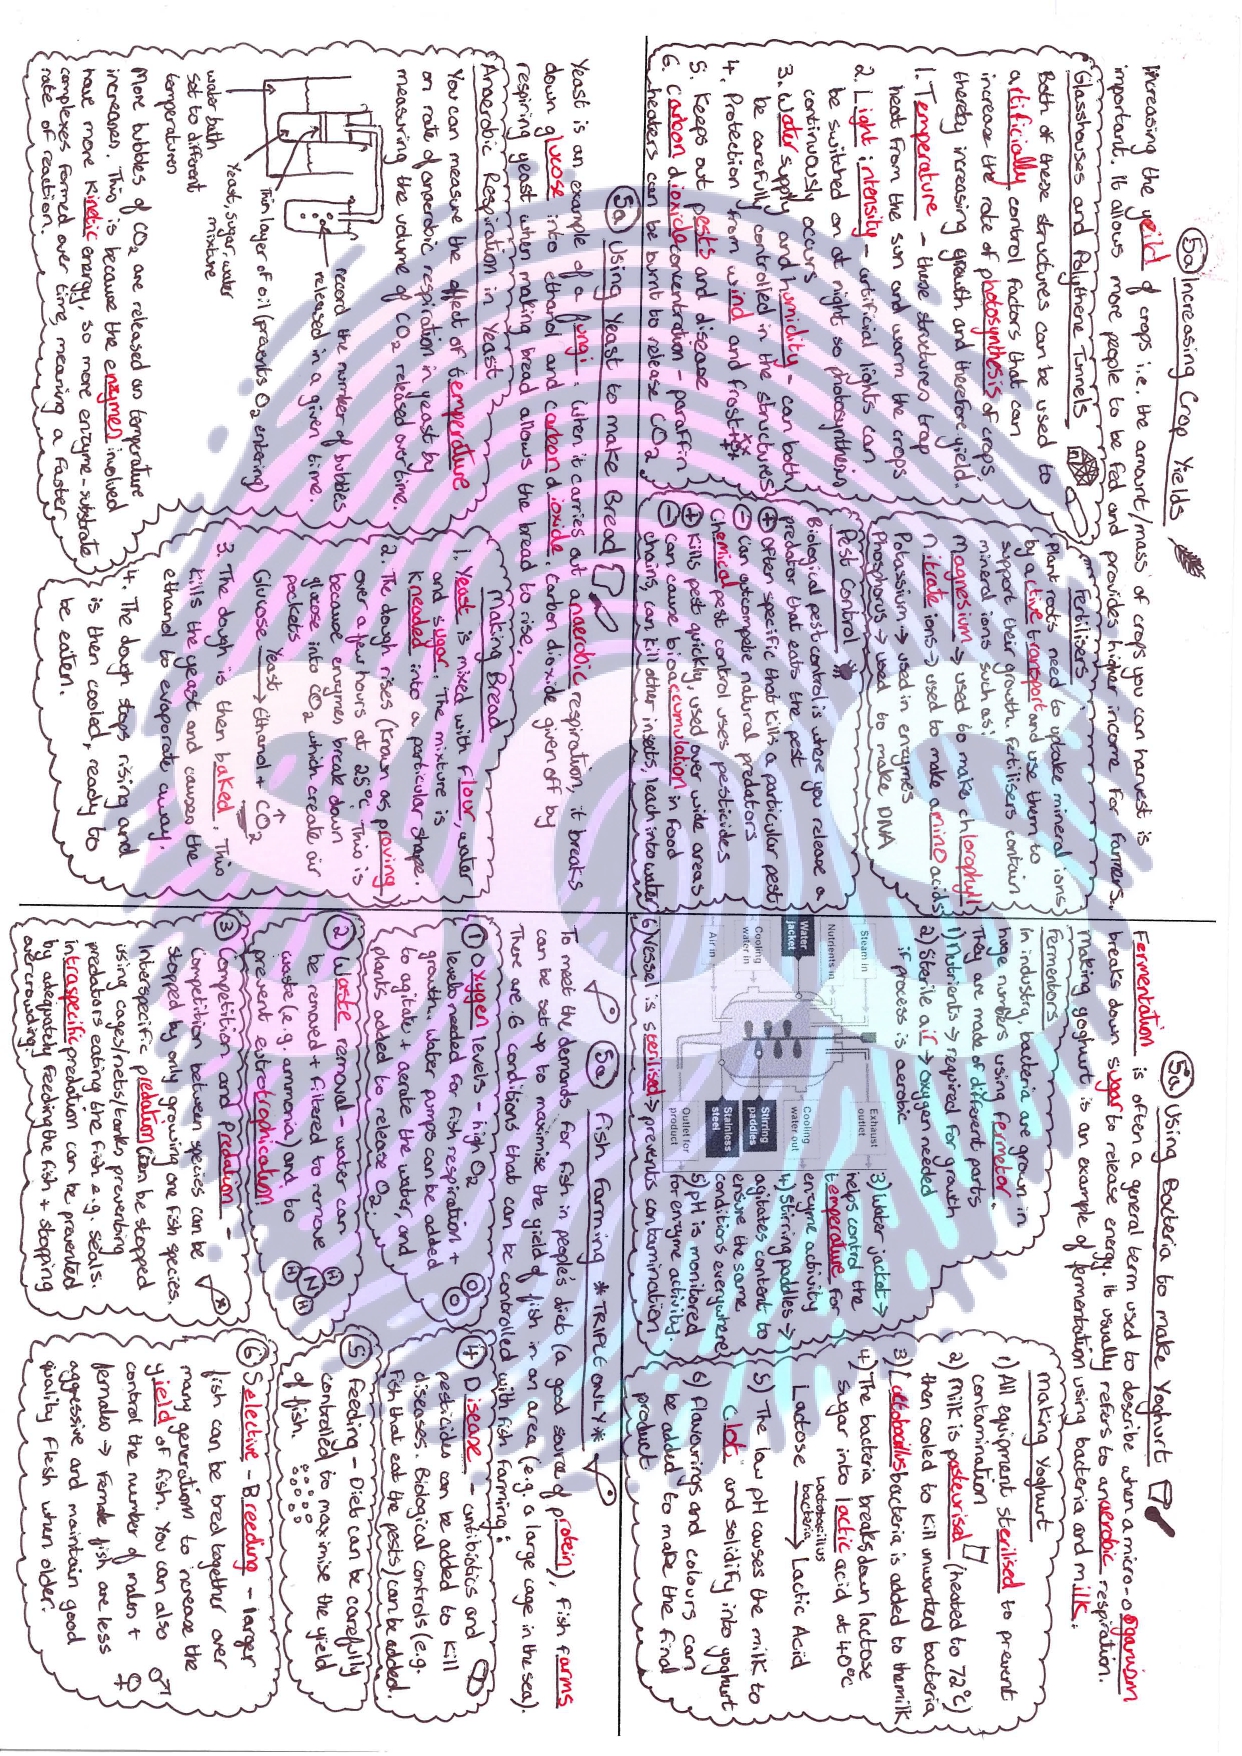 5a Increasing Crop Yields
Increasing the yeild of crops i.e. the amount/mass of crops you can harvest is
important. It allows more people to be fed and provides higher income for farmers.
Glasshouses and Polythene Tunnels
Both of these structures can be used to
artificially control factors that can
increase the rate of photosynthesis of crops,
thereby increasing growth and therefore yield.
1. Temperature - these structures trap
heat from the sun and warm the crops
2. Light intensity - artificial lights can
be switched on at night so photosynthesis
continuously occurs
3. Water supply and humidity - can both
be carefully controlled in the structures
4. Protection from wind and frost
5. Keeps out pests and disease
6. Carbon dioxide concentration - paraffin
heaters can be burnt to release CO2
Fertilisers
Plant roots need to uptake mineral ions
by active transport and use them to
support their growth. Fertilisers contain
mineral ions such as:
Magnesium → used to make chlorophyll
nitrate ions → used to make amino acids
Potassium → used in enzymes
Phosphorus → used to make DNA
Pest Control
Biological pest control is where you release a
predator that eats the pest
+ Often specific that kills a particular pest
- Can outcompete natural predators
Chemical pest control uses pesticides
+ Kills pest quickly, used over wide areas
- Can cause bioaccumulation in food
chains, can kill other insects, leach into water
5a Using Bacteria to make Yoghurt
Fermentation is often a general term used to describe when a micro-organism
breaks down sugar to release energy. It usually refers to anaerobic respiration.
Making yoghurt is an example of fermentation using bacteria and milk.
Fermentors
In industry, bacteria are grown in
huge numbers using fermetor.
They are made of different parts
1) Nutrients → required for growth
2) Sterile air → oxygen needed
if process is aerobic
Steam in
Nutrients in
Water
jacket
Cooling
water in
Air in
Exhaust
outlet
Cooling
water out
Stirring
paddles
Stainless
steel
Outlet for
product
3) Water jacket →
helps control the
temperature for
enzyme activity
4) Stirring paddles →
agitates content to
ensure the same
conditions everywhere
5) pH is monitored
for enzyme activity
6) Vessel is sterilised → prevents contamination
Making Yoghurt
1) All equipment sterilised to prevent
contamination
2) Milk is pasteurised (heated to 72°C)
then cooled to kill unwanted bacteria
3) Lactobacillus bacteria is added to the milk
4) The bacteria breaks down lactose
sugar into lactic acid at 40°C
Lactose Lactobacillus bacteria → Lactic Acid
5) The low pH causes the milk to
clot and solidify into yoghurt
6) Flavourings and colours can
be added to make the final
product
5a Using Yeast to make Bread
Yeast is an example of a fungi. When it carries out anaerobic respiration, it breaks
down glucose into ethanol and carbon dioxide. Carbon dioxide given off by
respiring yeast when making bread allows the bread to rise.
Anaerobic Respiration in Yeast
You can measure the affect of temperature
on rate of anaerobic respiration in yeast by
measuring the volume of CO2 released over time.
record the number of bubbles
released in a given time.
Thin layer of oil (prevents O2 entering)
Yeast, sugar, water
mixture
water bath
set to different
temperatures
More bubbles of CO2 are released as temperature
increases. This is because the enzymes involved
have more kinetic energy, so more enzyme-substrate
complexes formed over time, meaning a faster
rate of reaction.
Making Bread
1. Yeast is mixed with flour, water
and sugar. The mixture is
kneaded into a particular shape.
2. The dough rises (known as proving)
over a few hours at 25°C. This is
because enzymes break down
glucose into CO2 which create air
pockets
Glucose Yeast → Ethanol + CO2 ↑
3. The dough is then baked. This
kills the yeast and causes the
ethanol to evaporate away.
4. The dough stops rising and
is then cooled, ready to
be eaten.
5a Fish Farming *TRIPLE ONLY*
To meet the demands for fish in people's diets (a good source of protein), fish farms
can be set up to maximise the yield of fish in an area (e.g. a large cage in the sea).
There are 6 conditions that can be controlled with fish farming:
1 Oxygen levels - high O2
levels needed for fish respiration +
growth. Water pumps can be added
to agitate + aerate the water and
plants added to release O2.
O
O
2 Waste removal - water can
be removed + filtered to remove
waste (e.g. ammonia) and to
prevent eutrophication!
H
N
H
H
3 Competition and Predation -
competition between species can be
stopped by only growing one fish species.
Interspecific predation can be stopped
using cages/nets/tanks preventing
predators eating the fish e.g. seals.
Intraspecific predation can be prevented
by adequately feeding the fish + stopping
overcrowding.
4 Disease - antibiotics and
pesticides can be added to kill
diseases. Biological controls (e.g.
fish that eat the pests) can be added.
5 Feeding - Diet can be carefully
controlled to maximise the yield
of fish.
6 Selective - Breeding - larger
fish can be bred together over
many generations to increase the
yield of fish. You can also
control the number of males +
females → Female fish are less
aggressive and maintain good
quality flesh when older.